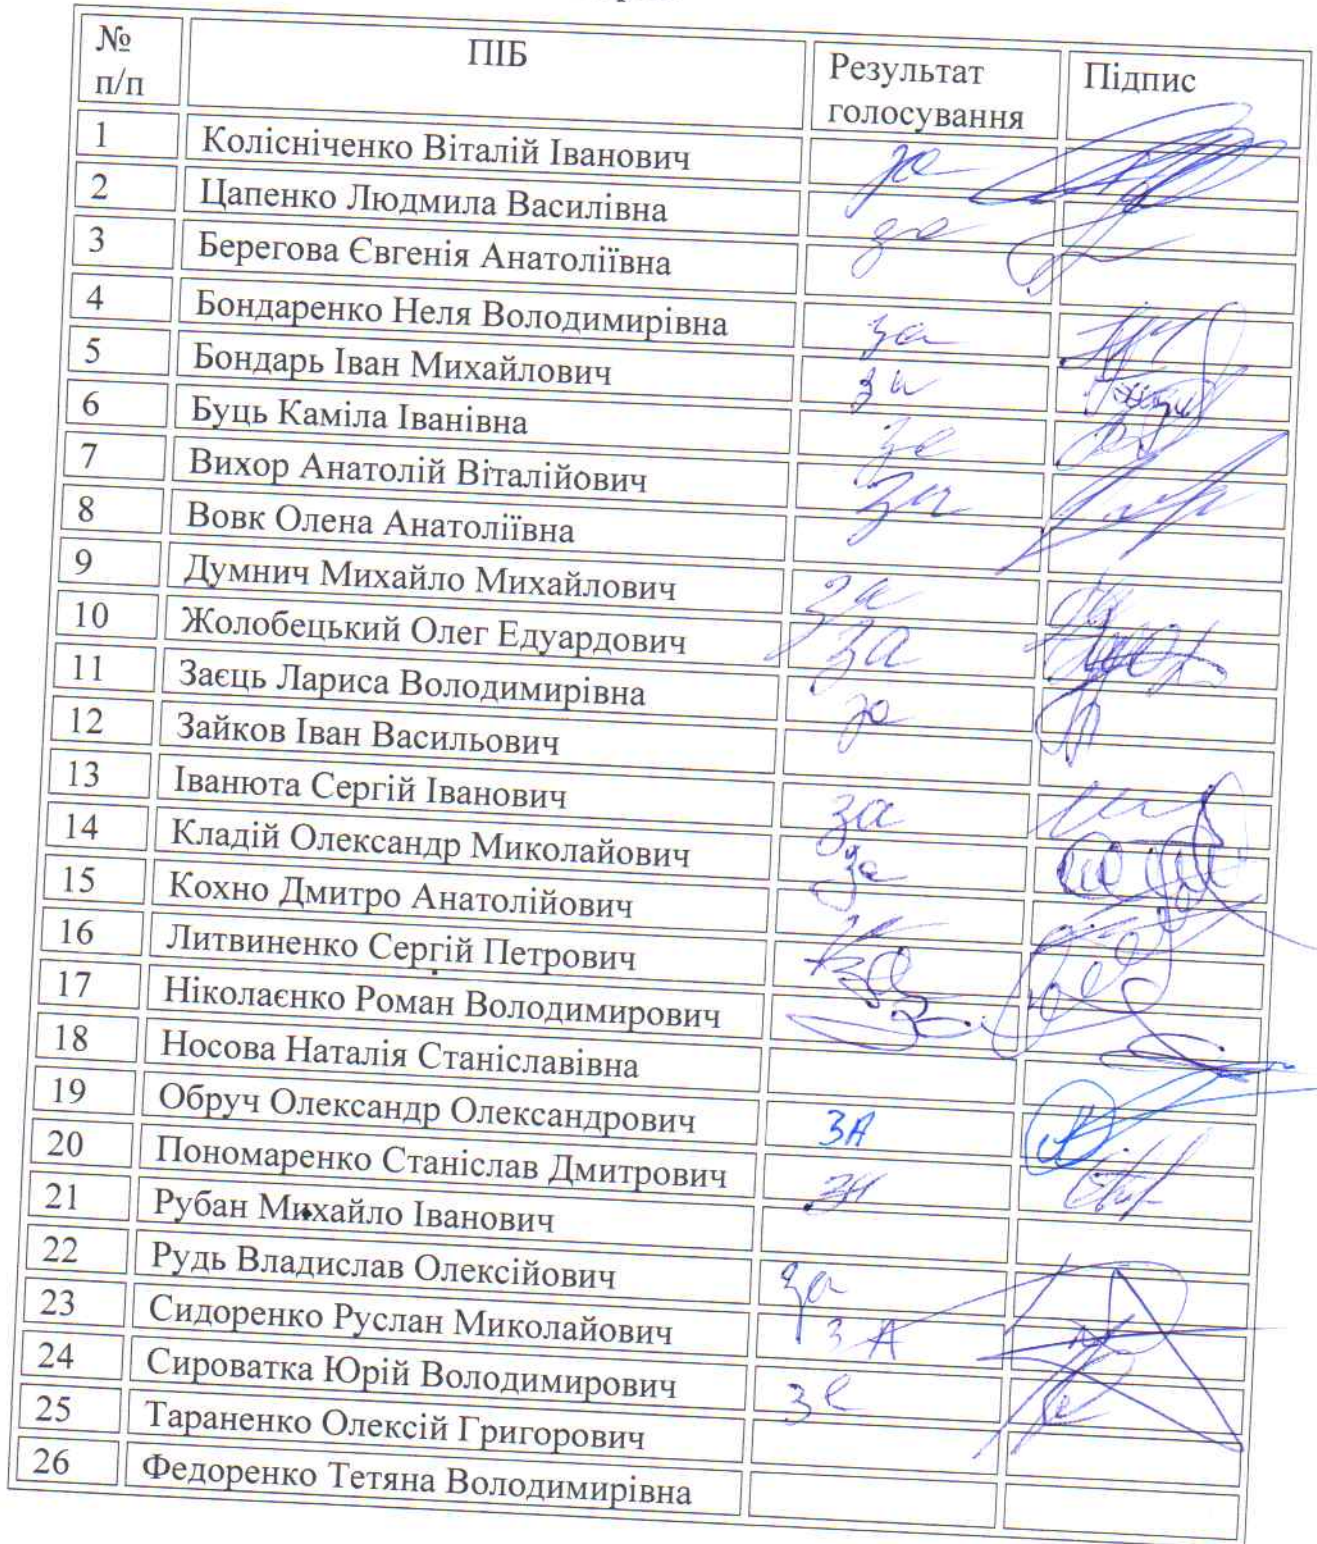 № п/п ПІБ Результат голосування Підпис
1 Колісніченко Віталій Іванович за
2 Цапенко Людмила Василівна за
3 Берегова Євгенія Анатоліївна
4 Бондаренко Неля Володимирівна за
5 Бондарь Іван Михайлович за
6 Буць Каміла Іванівна за
7 Вихор Анатолій Віталійович за
8 Вовк Олена Анатоліївна
9 Думнич Михайло Михайлович за
10 Жолобецький Олег Едуардович за
11 Заєць Лариса Володимирівна за
12 Зайков Іван Васильович
13 Іванюта Сергій Іванович за
14 Кладій Олександр Миколайович за
15 Кохно Дмитро Анатолійович
16 Литвиненко Сергій Петрович за
17 Ніколаєнко Роман Володимирович
18 Носова Наталія Станіславівна
19 Обруч Олександр Олександрович ЗА
20 Пономаренко Станіслав Дмитрович за
21 Рубан Михайло Іванович
22 Рудь Владислав Олексійович за
23 Сидоренко Руслан Миколайович ЗА
24 Сироватка Юрій Володимирович за
25 Тараненко Олексій Григорович
26 Федоренко Тетяна Володимирівна